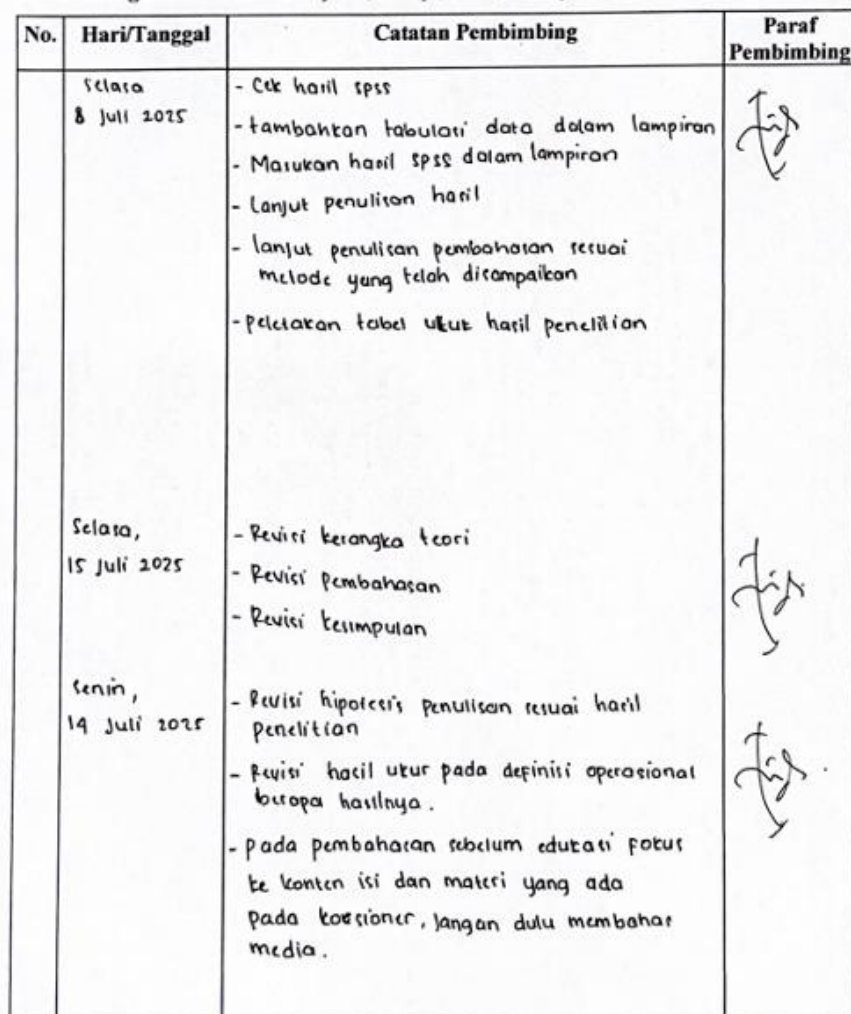 No. Hari/Tanggal Catatan Pembimbing Paraf Pembimbing
Selasa
8 Juli 2025
- Cek hasil spss
- tambahkan tabulasi data dalam lampiran
- Masukan hasil spss dalam lampiran
- Lanjut penulisan hasil
- lanjut penulisan pembahasan sesuai
metode yang telah disampaikan
- peletakan tabel ukur hasil penelitian
Selasa,
15 Juli 2025
- Revisi kerangka teori
- Revisi Pembahasan
- Revisi kesimpulan
Senin,
14 Juli 2025
- Revisi hipotesis penulisan sesuai hasil
penelitian
- Revisi hasil ukur pada definisi operasional
berapa hasilnya.
- pada pembahasan sebelum edukasi fokus
ke konten isi dan materi yang ada
pada koesioner, jangan dulu membahas
media.